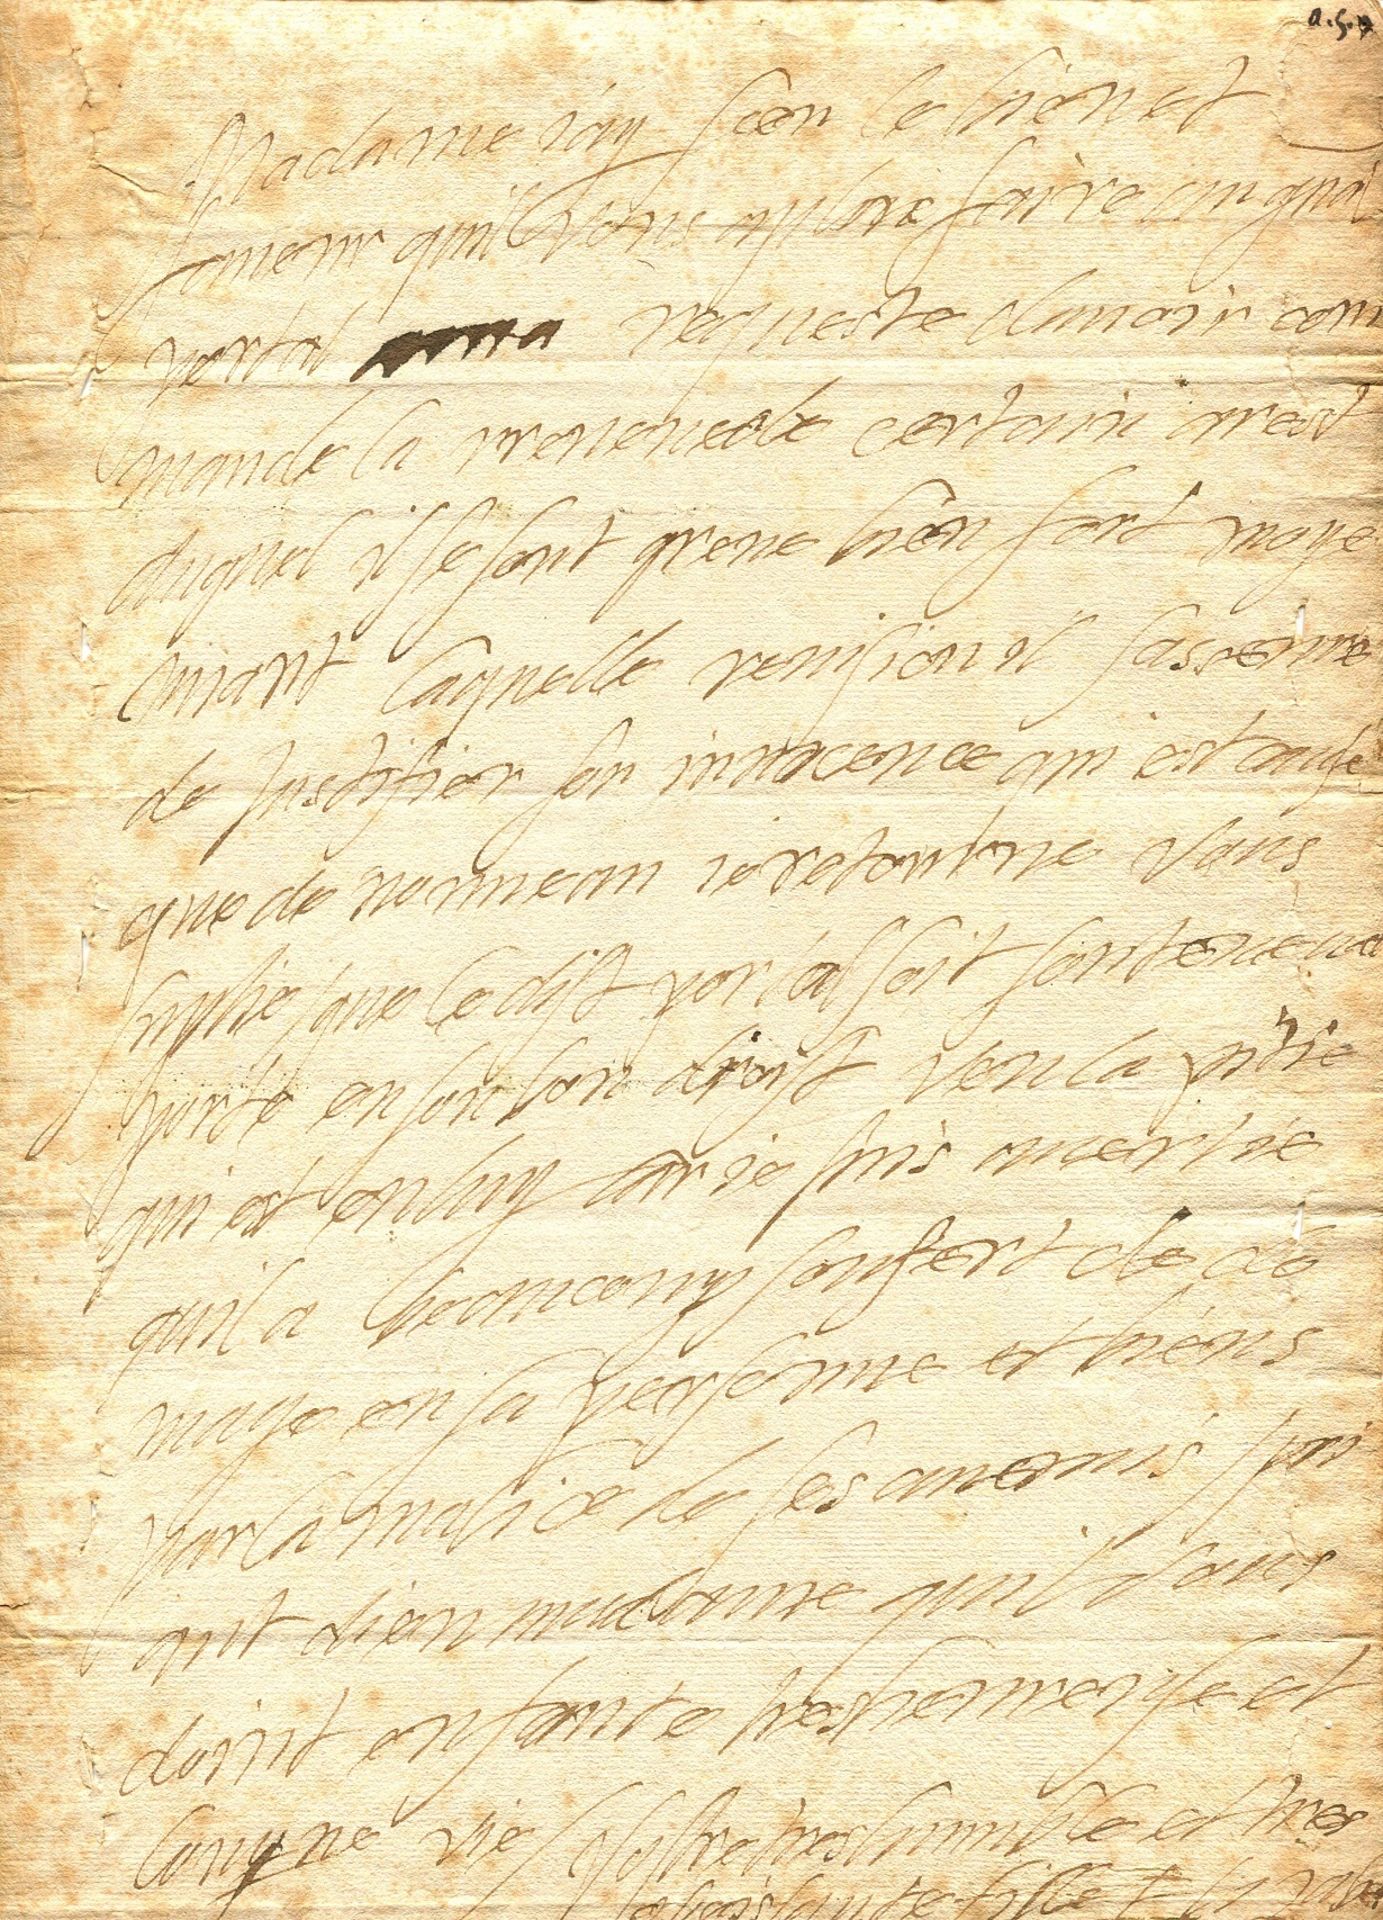 a.s.
Madame iay sceu le bien et
honneur quil vous a pleu faire au grñal
portal requeste davoir com
mande la reveue de certain arrest
duquel il se sent greve bien fort moye
nnant laquelle revision il sasseure
de justifier son innocence qui est cause
que de nouveau ie retourne vous
suplier que le dist portal soit
porte en son bon droist veu la
qui est en luy car ie suis avertie
quil a beaucoup soufert de do
mage en sa personne et biens
par la malice de ses anemis pri
ant dieu madame quil vous
doint enfante tresheureuse et
longue vie Vostre treshumble et tres
obeissante fille